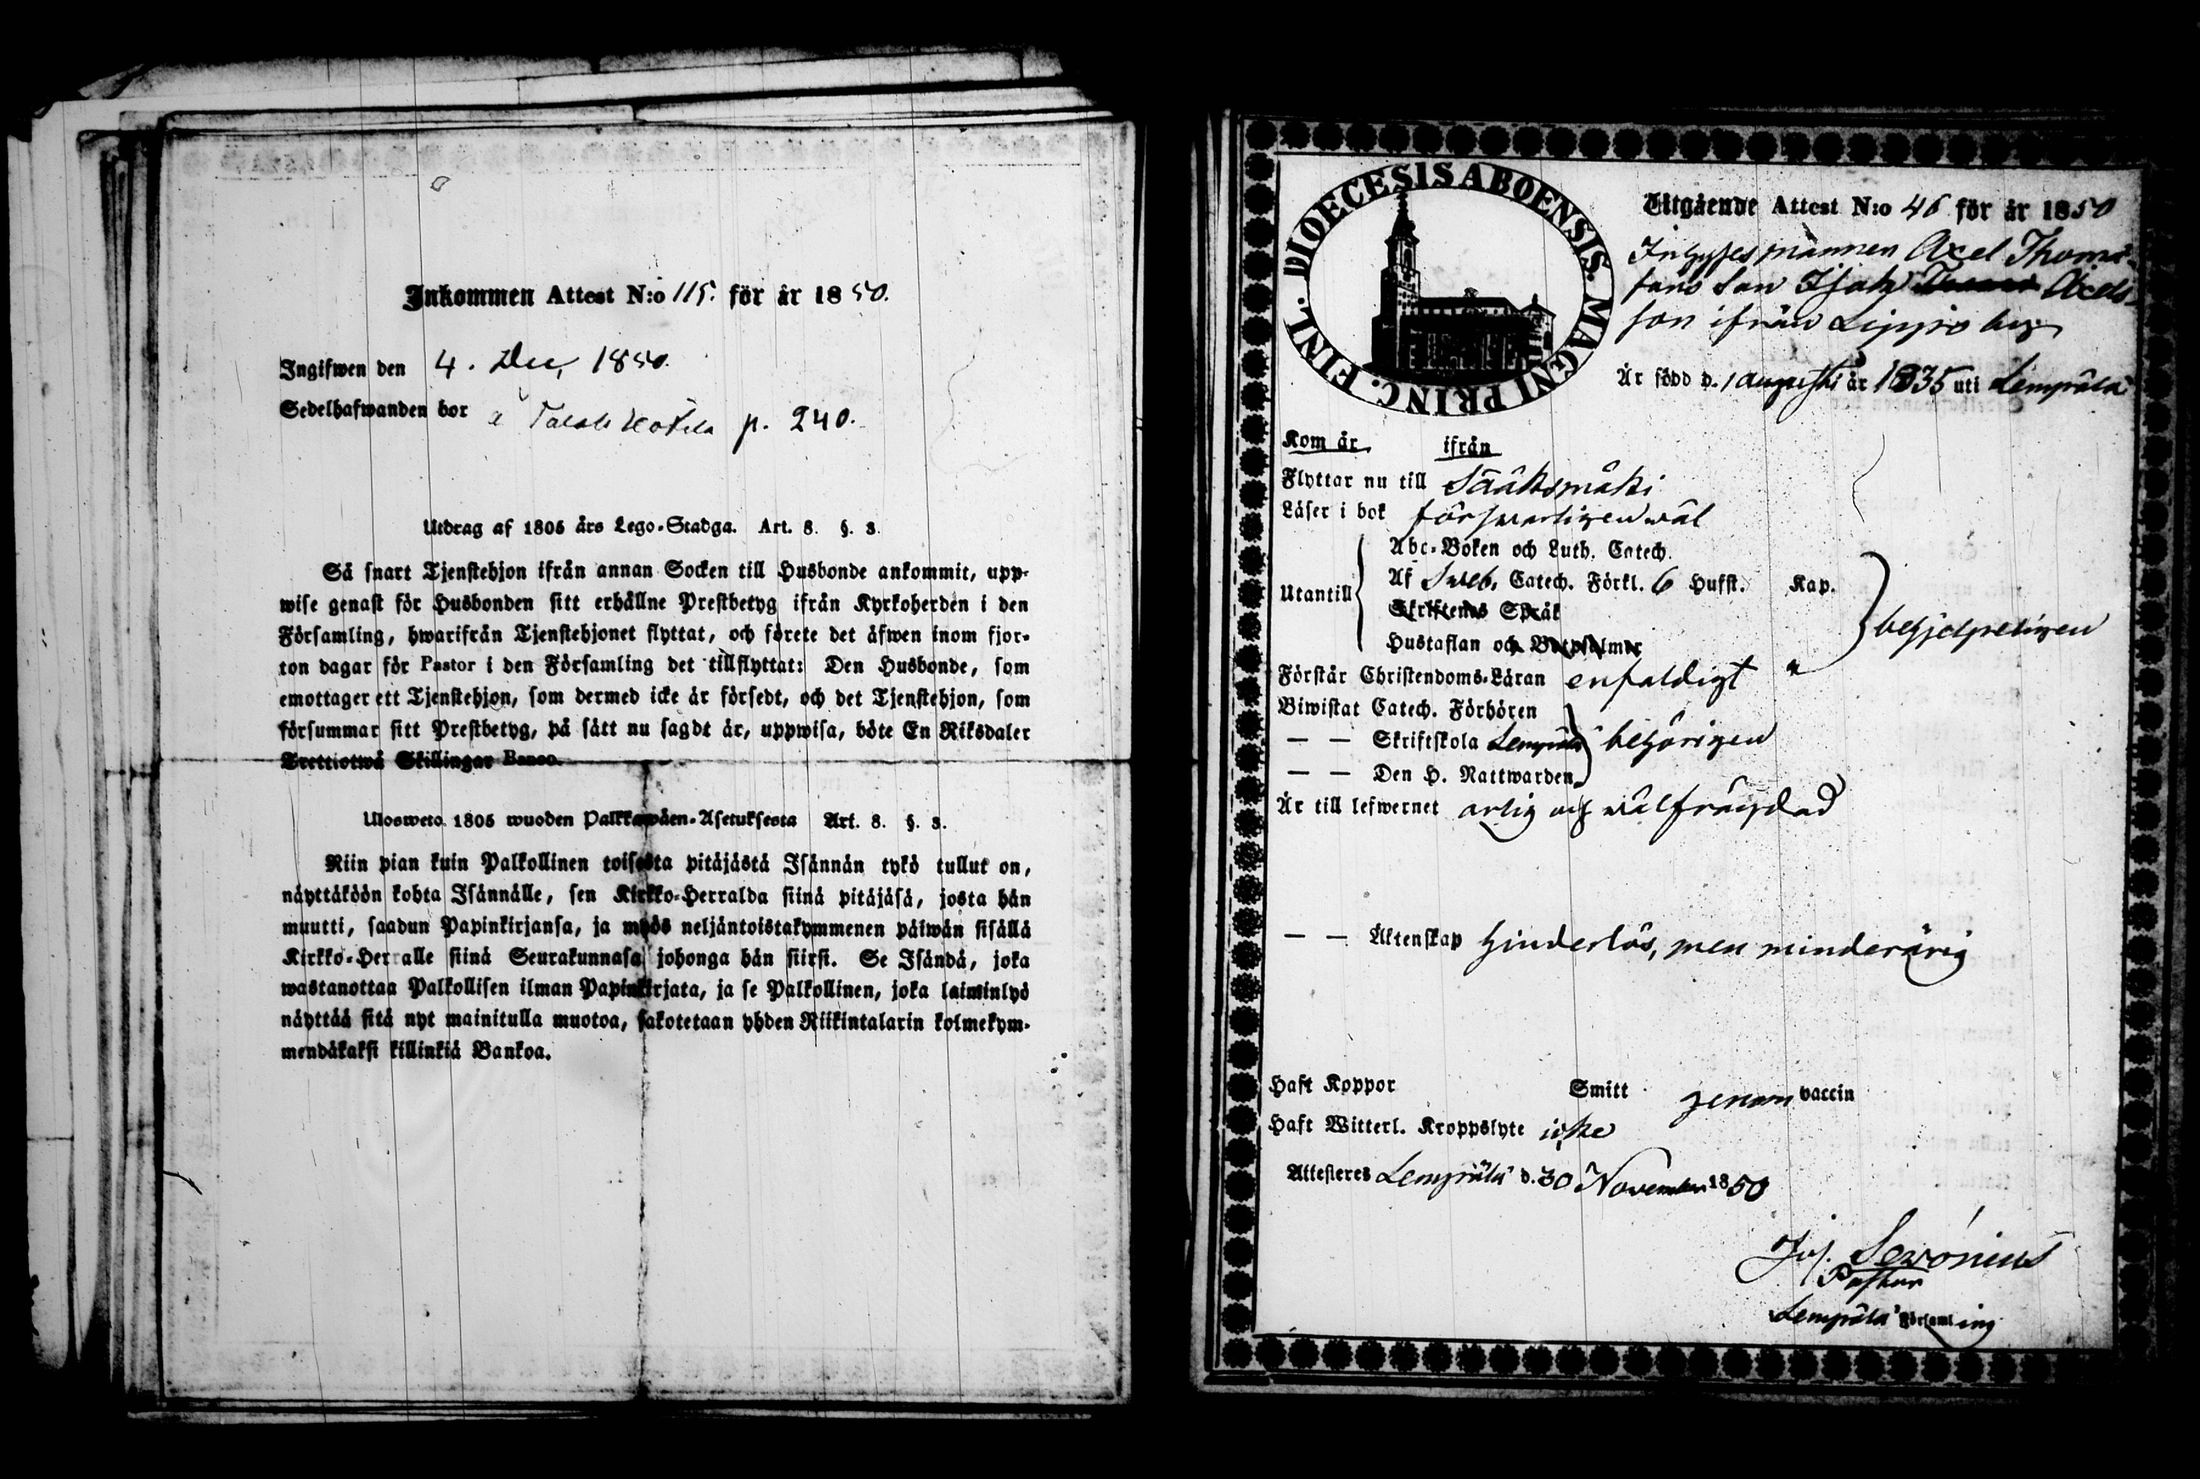 Inkommen Attest N:o 115. för år 1850.
Ingifwen den 4. Dec, 1850.
Sedelhafwanden bor å p. 240.
Utdrag af 1805 års Lego-Stadga. Art. 8. §. 3.
Så snart Tjenstehjon ifrån annan Socken till Husbonde ankommit, upp-
wise genast för Husbonden sitt erhållne Prestbetyg ifrån Kyrkoherden i den
Församling, hwarifrån Tjenstehjonet flyttat, och förete det äfwen inom fjor-
ton dagar för Pastor i den Församling det tillflyttat: Den Husbonde, som
emottager ett Tjenstehjon, som dermed icke är försedt, och det Tjenstehjon, som
försummar sitt Prestbetyg, på sätt nu sagdt är, uppwisa, böte En Riksdaler
Trettiotwå Skillingar Banco.
Ulosweto 1805 wuoden Palkkawäen-Asetuksesta Art. 8. §. 3.
Niin pian kuin Palkollinen toisesta pitäjästä Isännän tykö tullut on,
näyttäköön kohta Isännälle, sen Kirkko-Herralda siinä pitäjäsä, josta hän
muutti, saadun Papinkirjansa, ja myös neljäntoistakymmenen päiwän sisällä
Kirkko-Herralle siinä Seurakunnasa johonga hän siirsi. Se Isändä, joka
wastanottaa Palkollisen ilman Papinkirjata, ja se Palkollinen, joka laiminlyö
näyttää sitä nyt mainitulla muotoa, sakotetaan yhden Riikintalarin kolmekym-
mendäkaksi killinkiä Bankoa.
DIOECESIS ABOENSIS. MAGNI PRINC. FINL.
Utgående Attest N:o 46 för år 1850
Inhysesmannen Axel Thoms-
sons Son Isak Axels-
son ifrån Lippo by
Är född d. 1 augusti år 1835 uti Lempäla
Kom år ifrån
Flyttar nu till Sääksmäki
Läser i bok försvarligen wäl
Utantill
Abc-Boken och Luth. Catech.
Af Sveb. Catech. Förkl. 6 Hufst. Kap.
Skriftenes Språk
Hustaflan och Botpsalmer
behjelpeligen
Förstår Christendoms-Läran enfaldigt
Biwistat Catech. Förhören
— — Skriftskola Lempäla behörigen
— — Den H. Nattwarden
Är till lefwernet arlig och wälfrägdad
— — Äktenskap hinderlös, men minderårig
Haft Koppor Smitt genom vaccin
Haft Witterl. Kroppslyte icke
Attesteres Lempäla d. 30 November 1850
Jos. Serónius
Pastor
Lempäla Församling